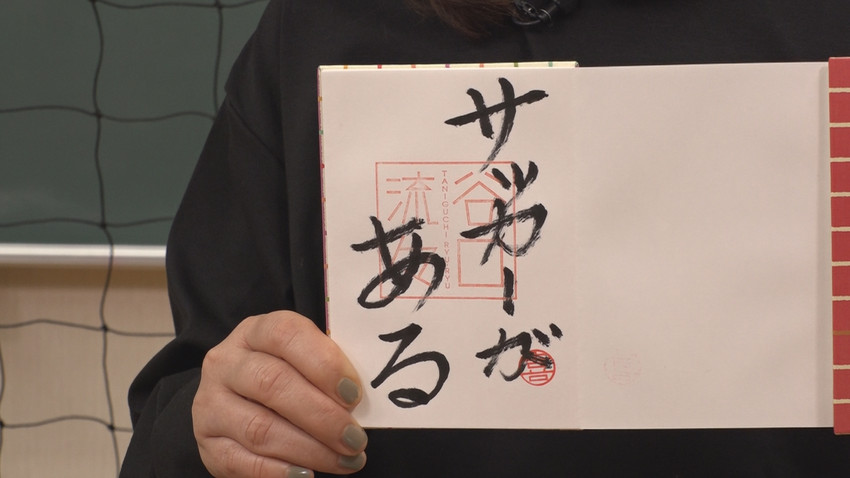 サッカーが
ある
谷口
流々
TANIGUCHI RYURYU